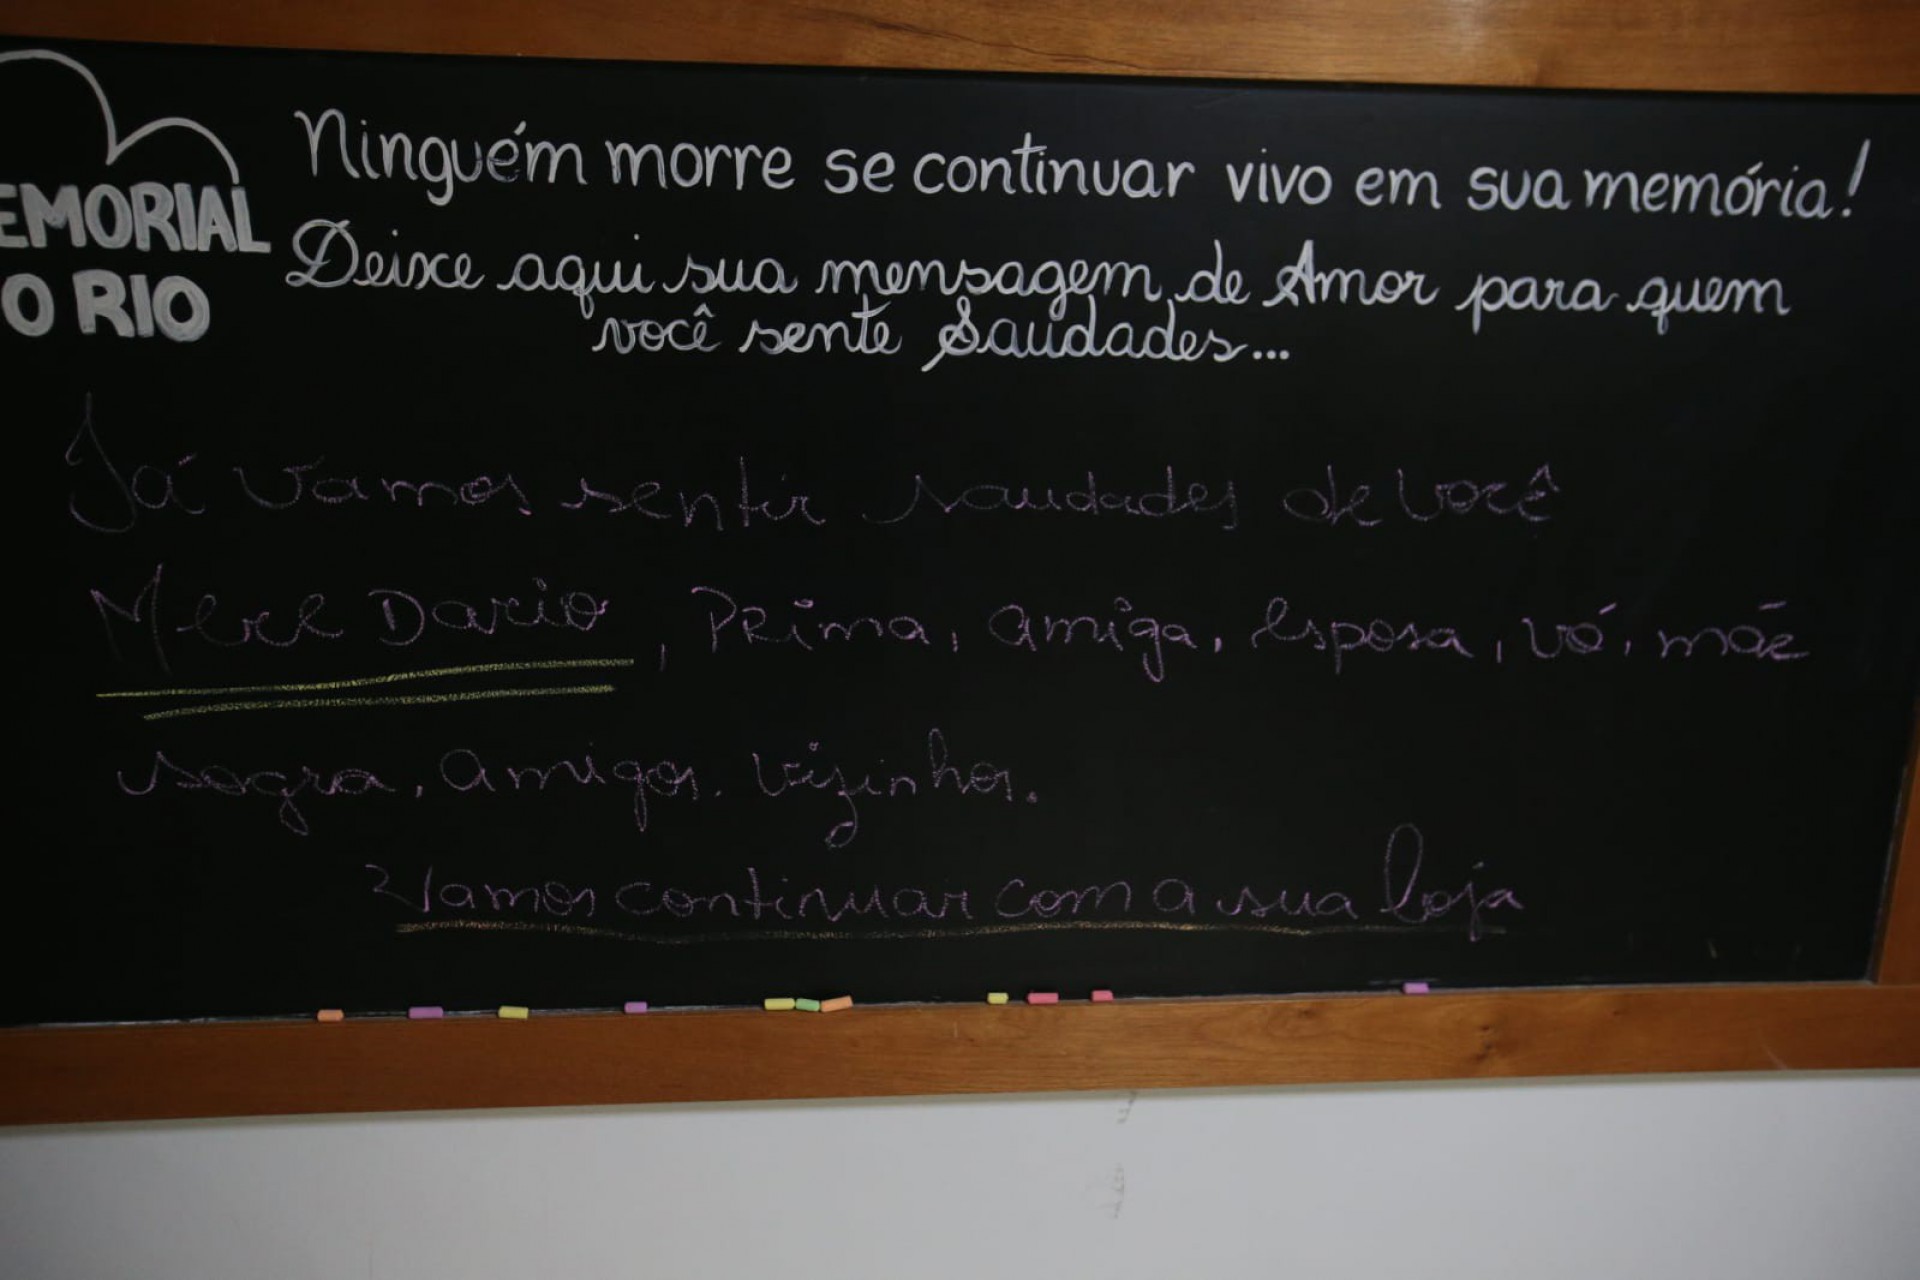 EMORIAL
O RIO
Ninguém morre se continuar vivo em sua memória!
Deixe aqui sua mensagem de Amor para quem
você sente Saudades...
Já vamos sentir saudades de você
Mere Dario, Prima, amiga, esposa, vó, mãe
sogra, amigos. vizinhos.
Vamos continuar com a sua loja